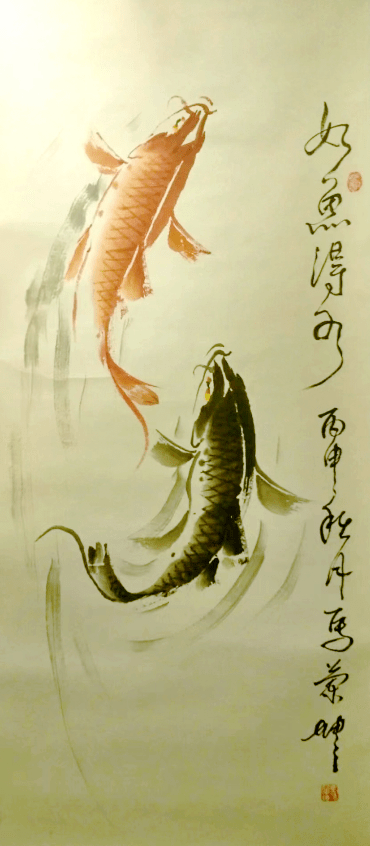 如魚得水
丙申秋月馬蘭